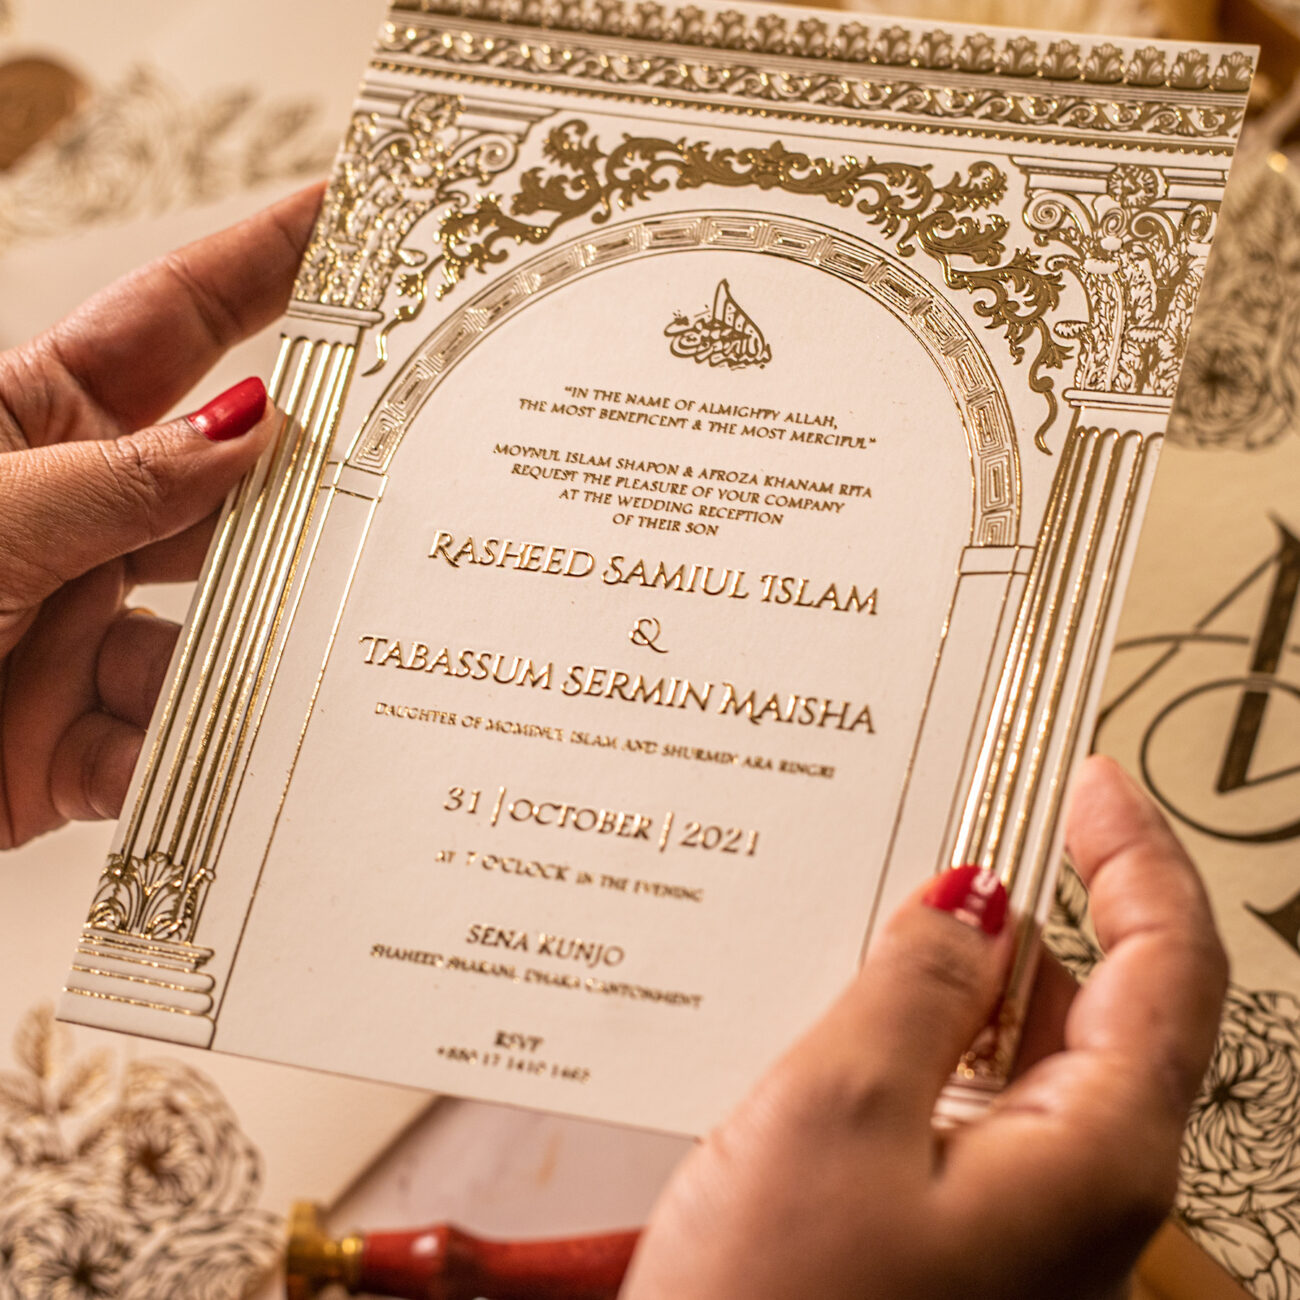 بسم الله الرحمن الرحيم
"IN THE NAME OF ALMIGHTY ALLAH,
THE MOST BENEFICENT & THE MOST MERCIFUL"
MOYNUL ISLAM SHAPON & AFROZA KHANAM RITA
REQUEST THE PLEASURE OF YOUR COMPANY
AT THE WEDDING RECEPTION
OF THEIR SON
RASHEED SAMIUL ISLAM
&
TABASSUM SERMIN MAISHA
DAUGHTER OF MOMINUL ISLAM AND SHURMIN ARA RINGRI
31 | OCTOBER | 2021
AT 7 O'CLOCK IN THE EVENING
SENA KUNJO
SHAHEED SHARANI, DHAKA CANTONMENT
RSVP
+880 17 1410